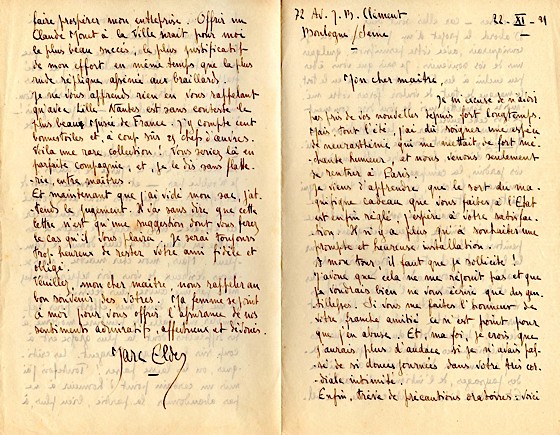 72 Av. J. B. Clément
Boulogne s/Seine
22-XI-21
Mon cher maitre,
Je m'excuse de n'avoir
pas pris de vos nouvelles depuis fort longtemps.
Mais tout l'été, j'ai dû soigner une espèce
de neurasthénie qui me mettait de fort mé-
chante humeur, et nous venons seulement
de rentrer à Paris.
Je viens d'apprendre que le sort du ma-
gnifique cadeau que vous faites à l'Etat
est enfin réglé, j'espère à votre satisfac-
tion. Il n'y a plus qu'à souhaiter une
prompte et heureuse installation.
A mon tour, il faut que je sollicite !
J'avoue que cela ne me réjouit pas et que
je voudrais bien ne vous écrire que des gen-
tillesses. Si vous me faites l'honneur de
votre franche amitié ce n'est point pour
que j'en abuse. Et, ma foi, je crois que
j'aurais plus d'audace si je n'avais pas-
sé de si douces journées dans votre très cor-
diale intimité.
Enfin, trêve de précautions oratoires : voici
faire prospérer mon entreprise. Offrir un
Claude Monet à la Ville serait pour moi
le plus beau succès, le plus justificatif
de mon effort en même temps que la plus
rude réplique assénée aux braillards.
Je ne vous apprends rien en vous rappelant
qu'avec Lille, Nantes est sans conteste le
plus beau Musée de France. J'y compte cent
homestories et, à coup sûr 25 chefs d'œuvres.
Voilà une rare collection ! Vous seriez là en
parfaite compagnie, et, je le dis sans flatte-
rie, entre maitres.
Et maintenant que j'ai vidé mon sac, j'at-
tends le jugement. Il va sans dire que cette
lettre n'est qu'une suggestion dont vous ferez
le cas qu'il vous plaira. Je serai toujours
trop heureux de rester votre ami fidèle et
obligé.
Veuillez, mon cher maitre, nous rappeler au
bon souvenir des vôtres. Ma femme se joint
à moi pour vous offrir l'assurance de nos
sentiments admiratifs, affectueux et dévoués.
Marc Elder